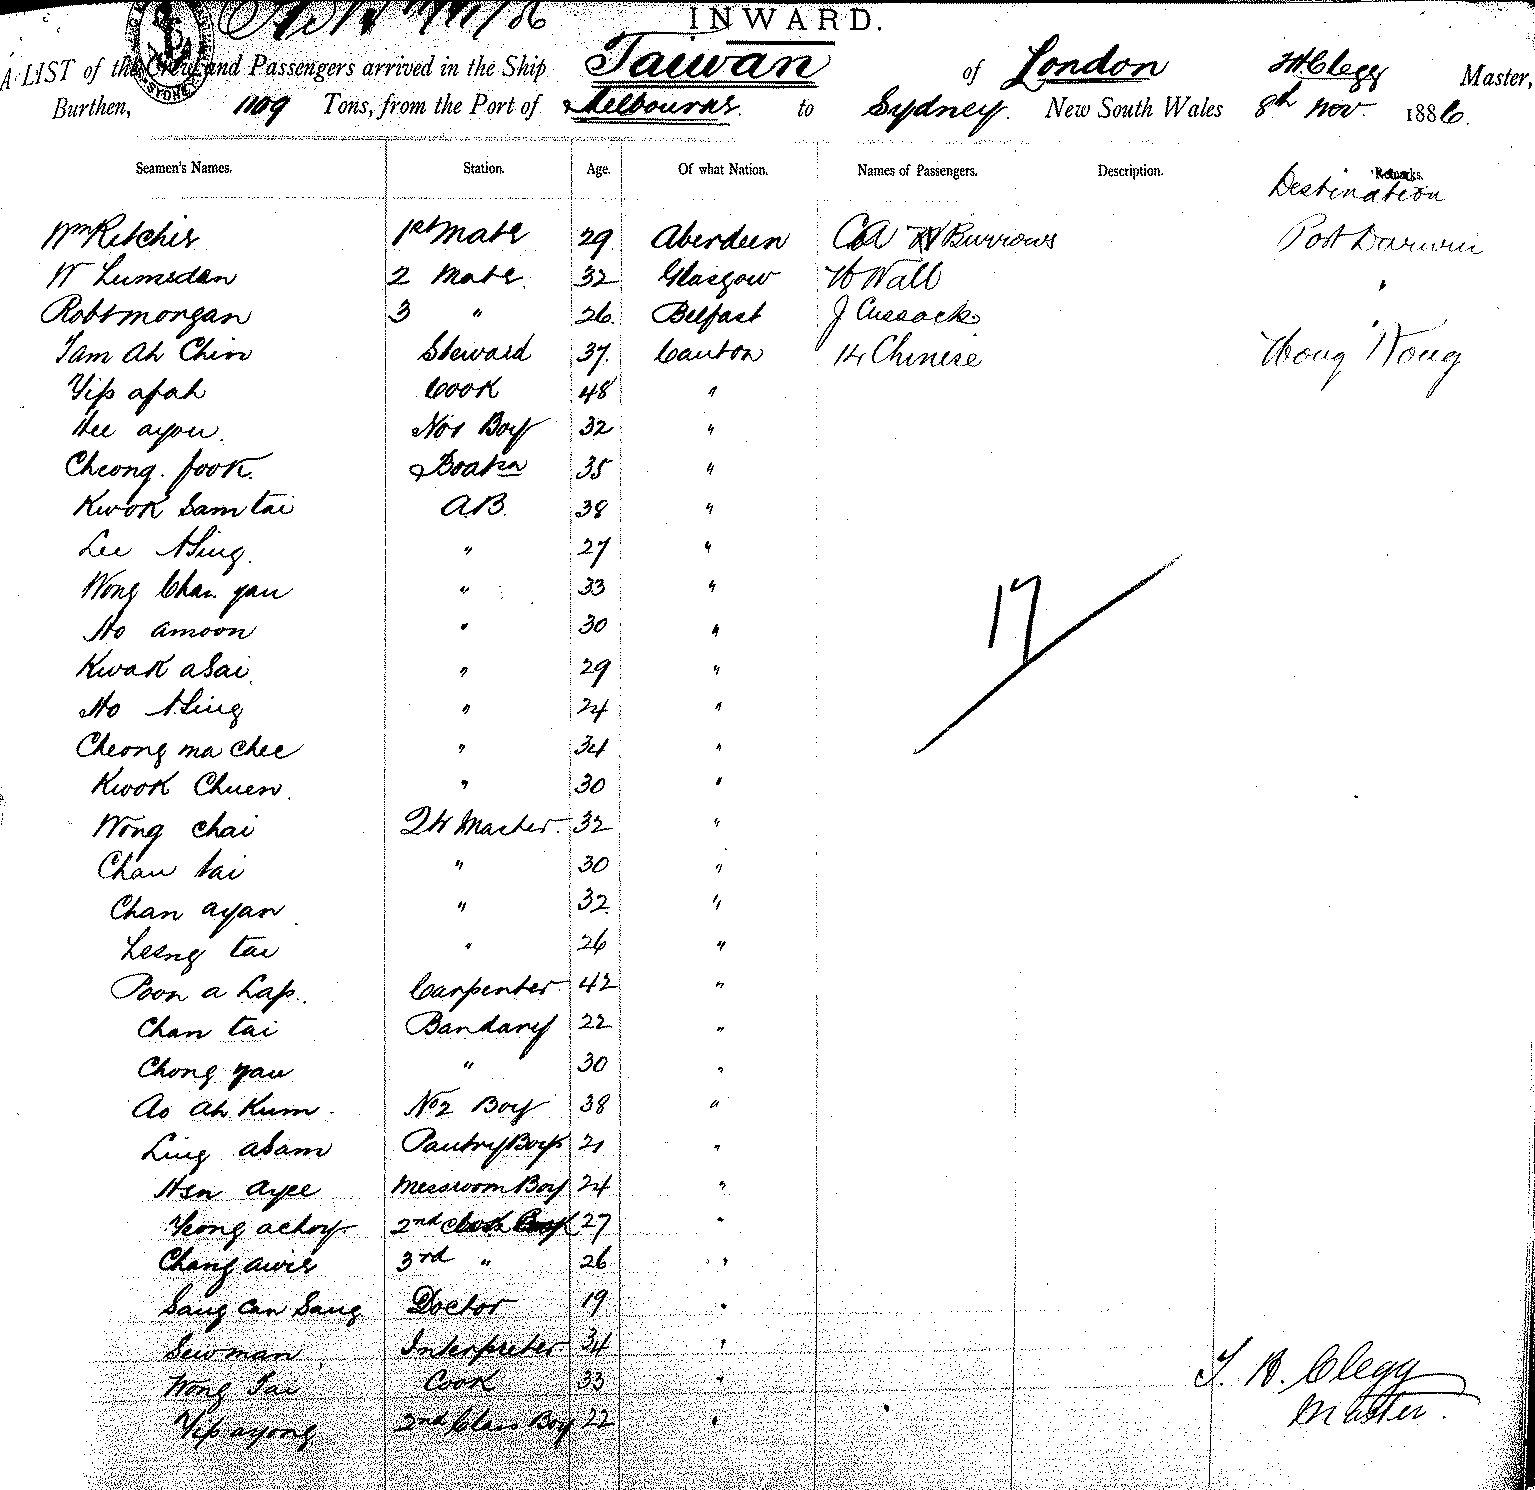 INWARD.
A LIST of the Crew and Passengers arrived in the Ship Taiwan of London Clegg Master,
Burthen, 1109 Tons, from the Port of Melbourne to Sydney New South Wales 8th Nov. 1886.
Seamen's Names. Station. Age. Of what Nation. Names of Passengers. Description. Remarks.
Destination
Wm Ritchie 1st Mate 29 Aberdeen Burrows Port Darwin
W Lumsden 2 Mate 32 Glasgow W Wall "
Robt Morgan 3 " 26 Belfast J Cussack "
Tam Ah Chin Steward 37 Canton 14 Chinese Hong Kong
Yip afah Cook 48 "
Hee ayou No1 Boy 32 "
Cheong fook 35 "
Kwok Sam tai A.B. 38 "
Lee " 27 "
Wong Chan yau " 33 "
Ho amoon " 30 "
Kwok aSai " 29 "
Ho " 24 "
Cheong ma chee " 34 "
Kwok Chuen " 30 "
17
Wong chai Qr Master 32 "
Chau tai " 30 "
Chan ayan " 32 "
Leong tai " 26 "
Poon a Lap Carpenter 42 "
Chan tai Bandary 22 "
Chong yau " 30 "
Ao Ah Kum No2 Boy 38 "
Ling aSam Pantry Boy 21 "
ayee Messroom Boy 24 "
Yeong achoy 2nd 27 "
Chang 3rd " 26 "
Sang Can Sang Doctor 19 "
Sewman Interpreter 34 "
Wong Tai Cook 33 "
Yip ayong 2nd Class Boy 22 "
T. H. Clegg
Master.